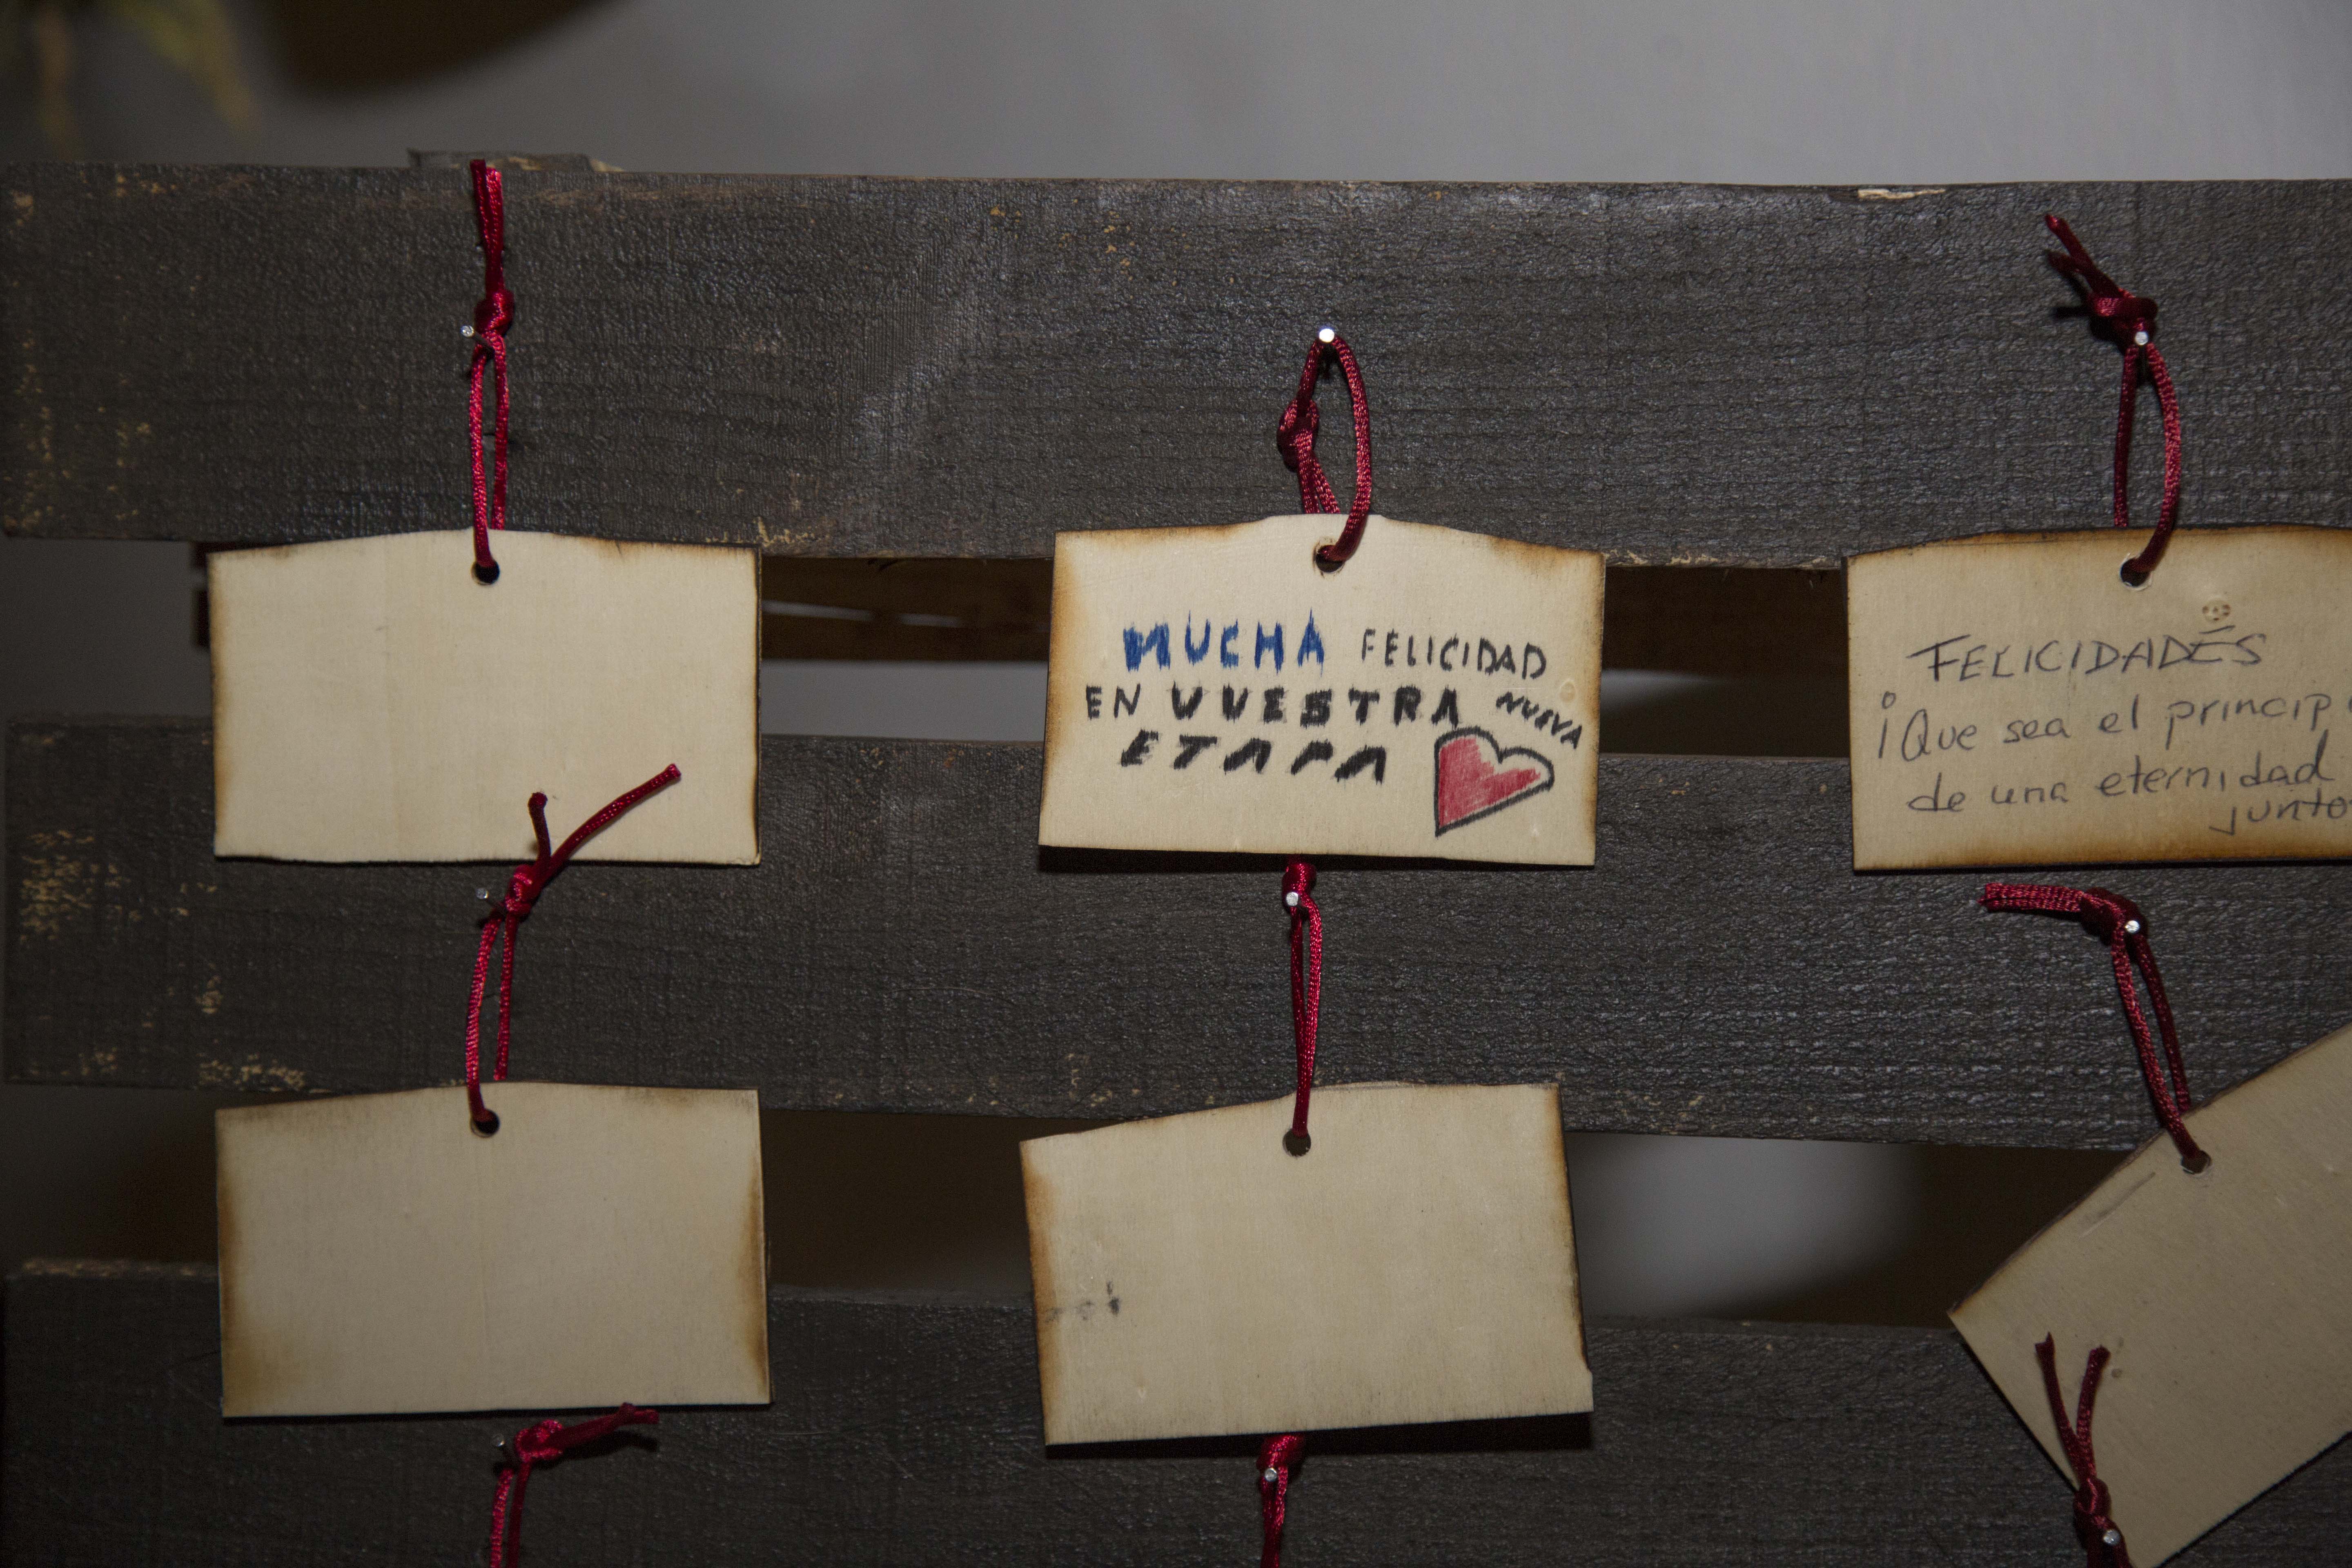 MUCHA FELICIDAD
EN VUESTRA NUEVA
ETAPA
FELICIDADÉS
¡Que sea el princip
de una eternidad
junto